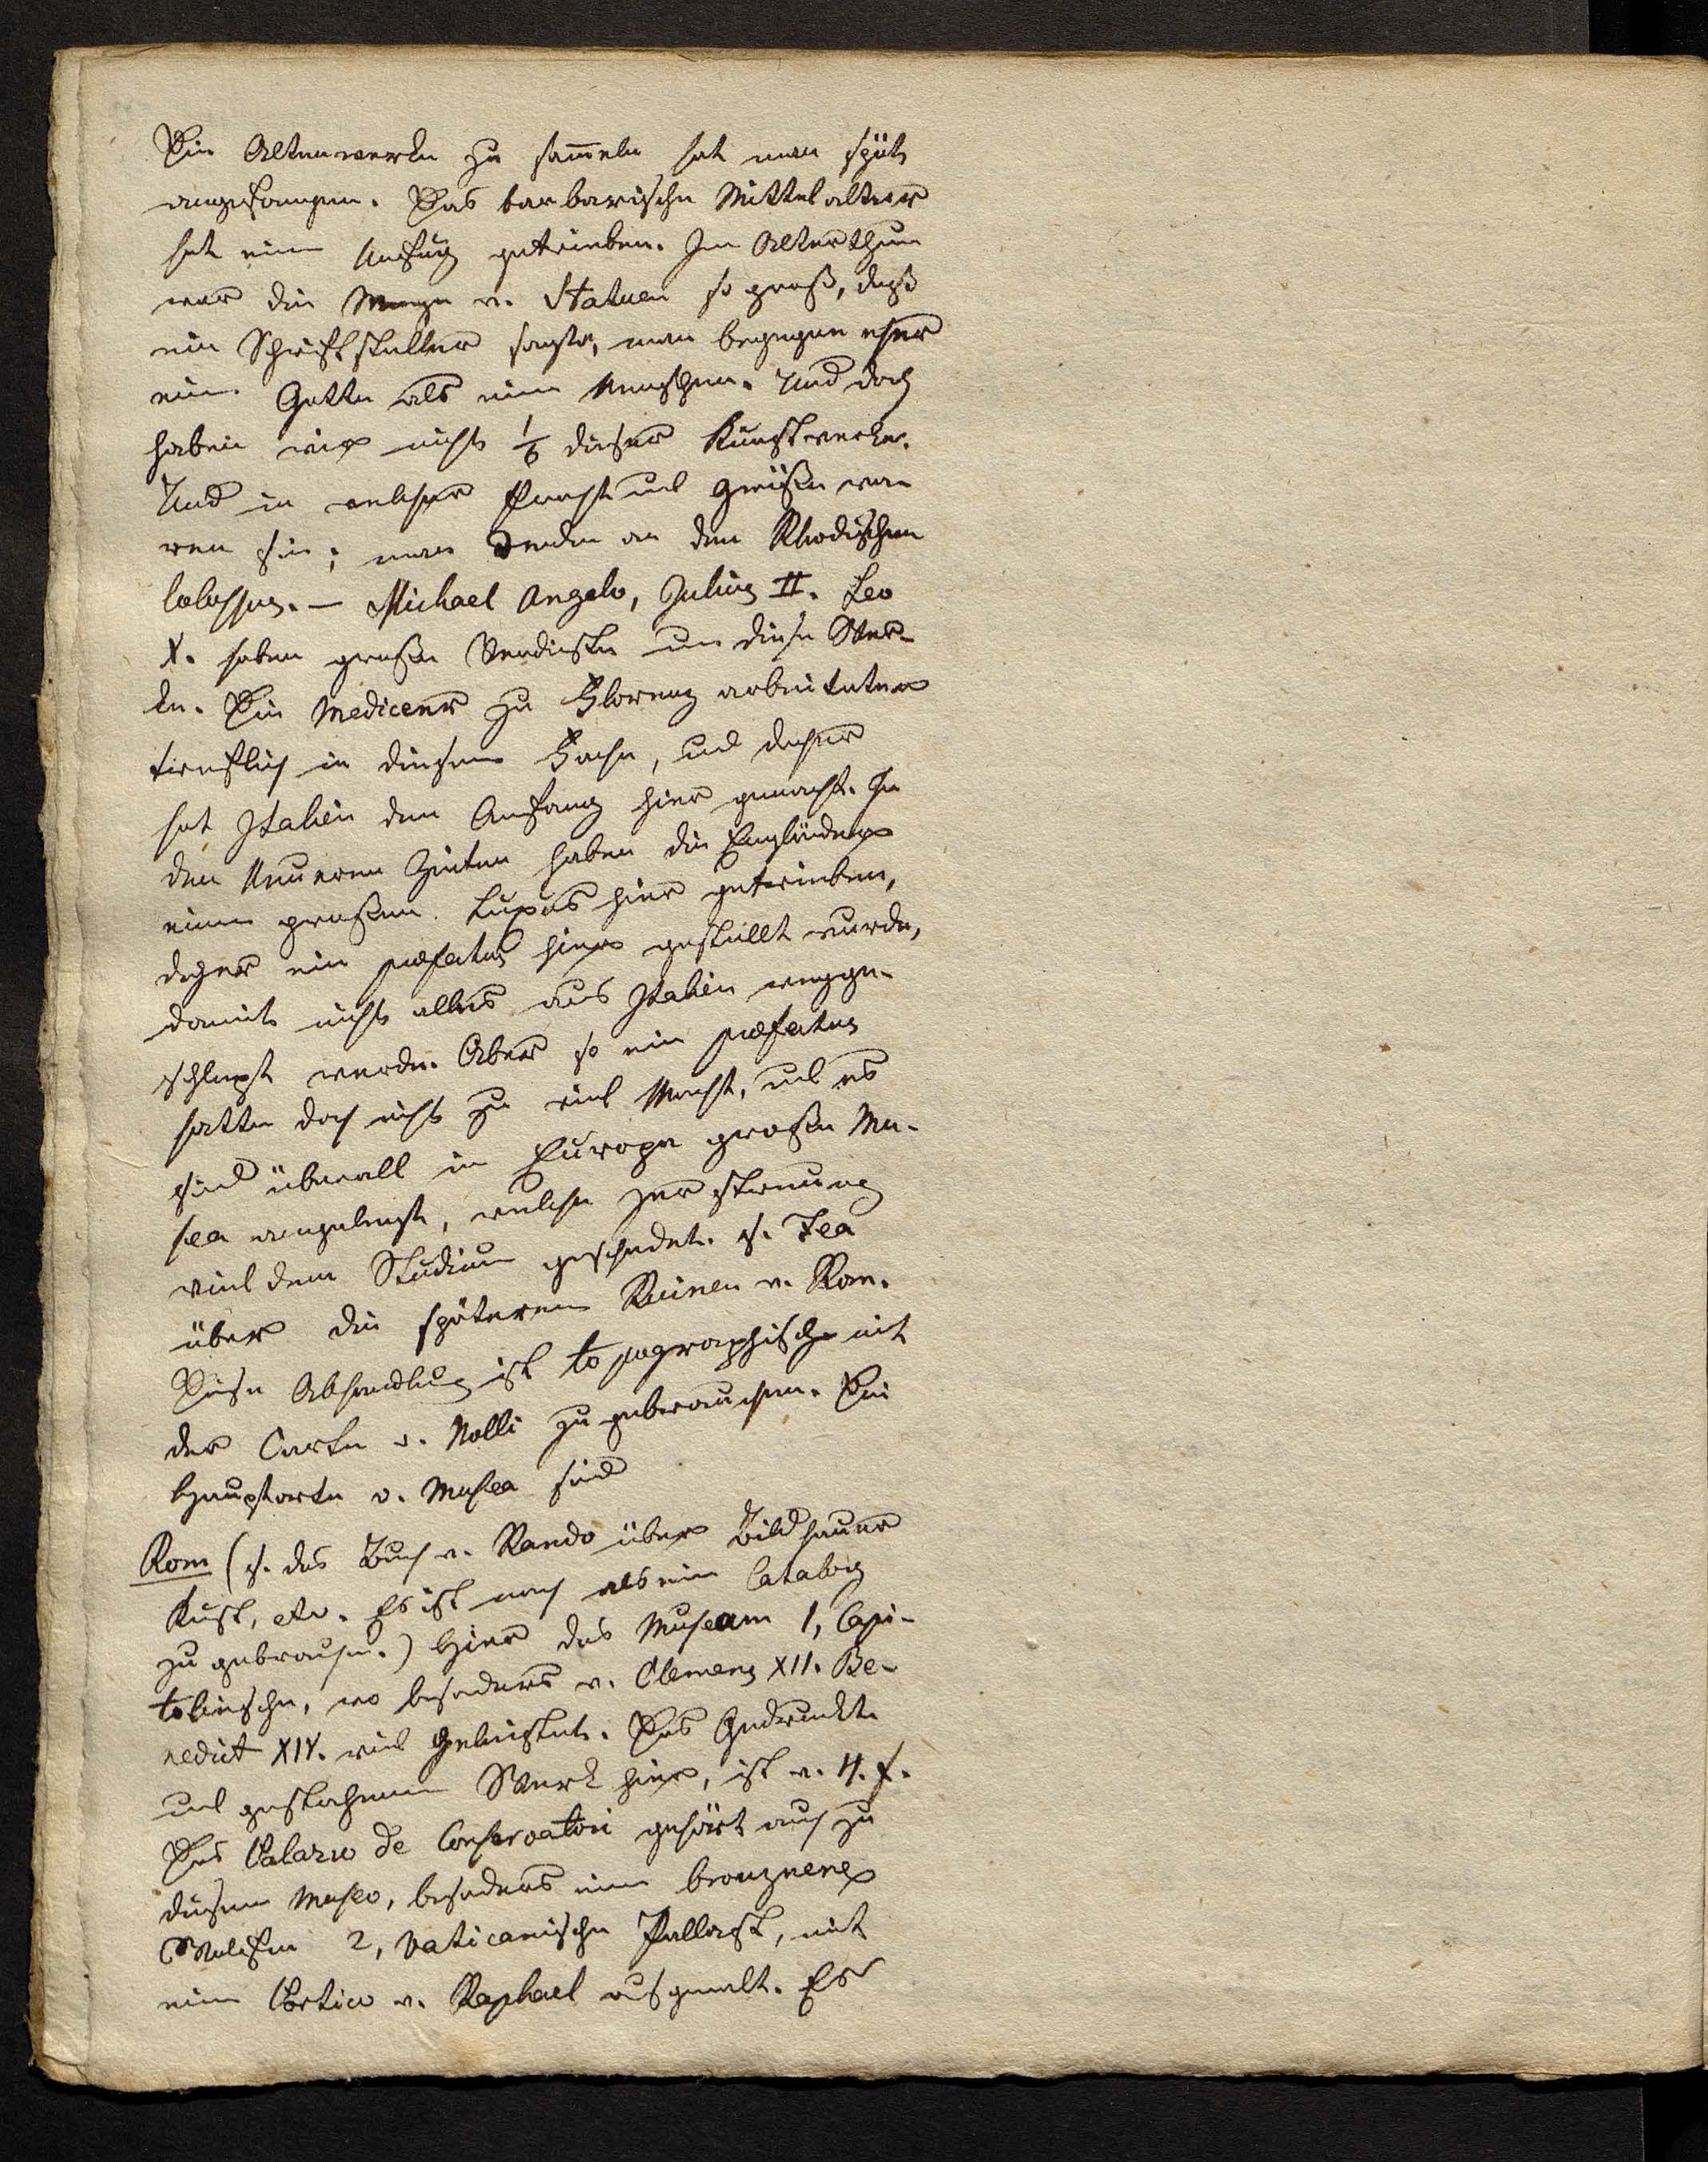 Die Altenwerke zu sam̄eln hat man spät
angefangen. Das barbarische Mittelalter
hat eine Unfug getrieben. Im Alterthum
war die Menge v. Statuen so groß, daß
ein Schriftsteller sagte, man begegne eher
eine Gotte als eine Menschen. Und doch
haben wir nicht 1/6 dieser Kunstwerke.
Und in welcher Pracht und Größe wa-
ren sie; man denke an den Rhodischen
Colossus. — Michael Angelo, Julius II. Leo
X. haben große Verdienste um diese Wer-
ke. Die Mediceer zu Florenz arbeiteten
trefflich in diesem Fache, und daher
hat Italien den Anfang hier gemacht. In
den Neueren Zeiten haben die Engländer
einen großen Luxus hier getrieben,
daher ein præfectus hier gestellt wurde,
damit nicht alles aus Italien wegge-
schleppt werde. Aber so ein præfectus
hatte doch nicht zu viel Macht, und es
sind überall in Europa große Mu-
sea angelegt, welche Zerstreuung
viel dem Studium geschadet. s. Fea
über die späteren Ruinen v. Rom.
Diese Abhandlung ist topographisch mit
der Carte v. Nolli zu gebrauchen. Die
Hauptorte v. Musea sind
Rom (s. das Buch v. Ramdo über Bildhauer
Kust, etc. Es ist noch als ein Catalog
zu gebrauchen.) Hier das Museum 1, Capi-
tolinische, wo besonders v. Clemens XII. Be-
nedict XIV. viel geleistet. Das Gedruckte
und gestochene Werk hier, ist v. 4. f.
Das Palazzo de Conservatori gehört auch zu
diesem Museo, besonders eine bronzene
Wölfin 2, Vaticanische Pallast, mit
eine Portico v. Raphael ausgemalt. Es